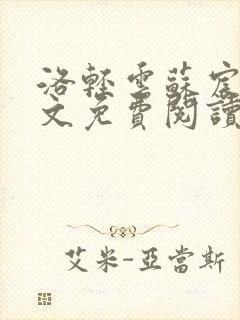 洛輕雲蘇宸
文免費閱讀
艾米-亞當斯